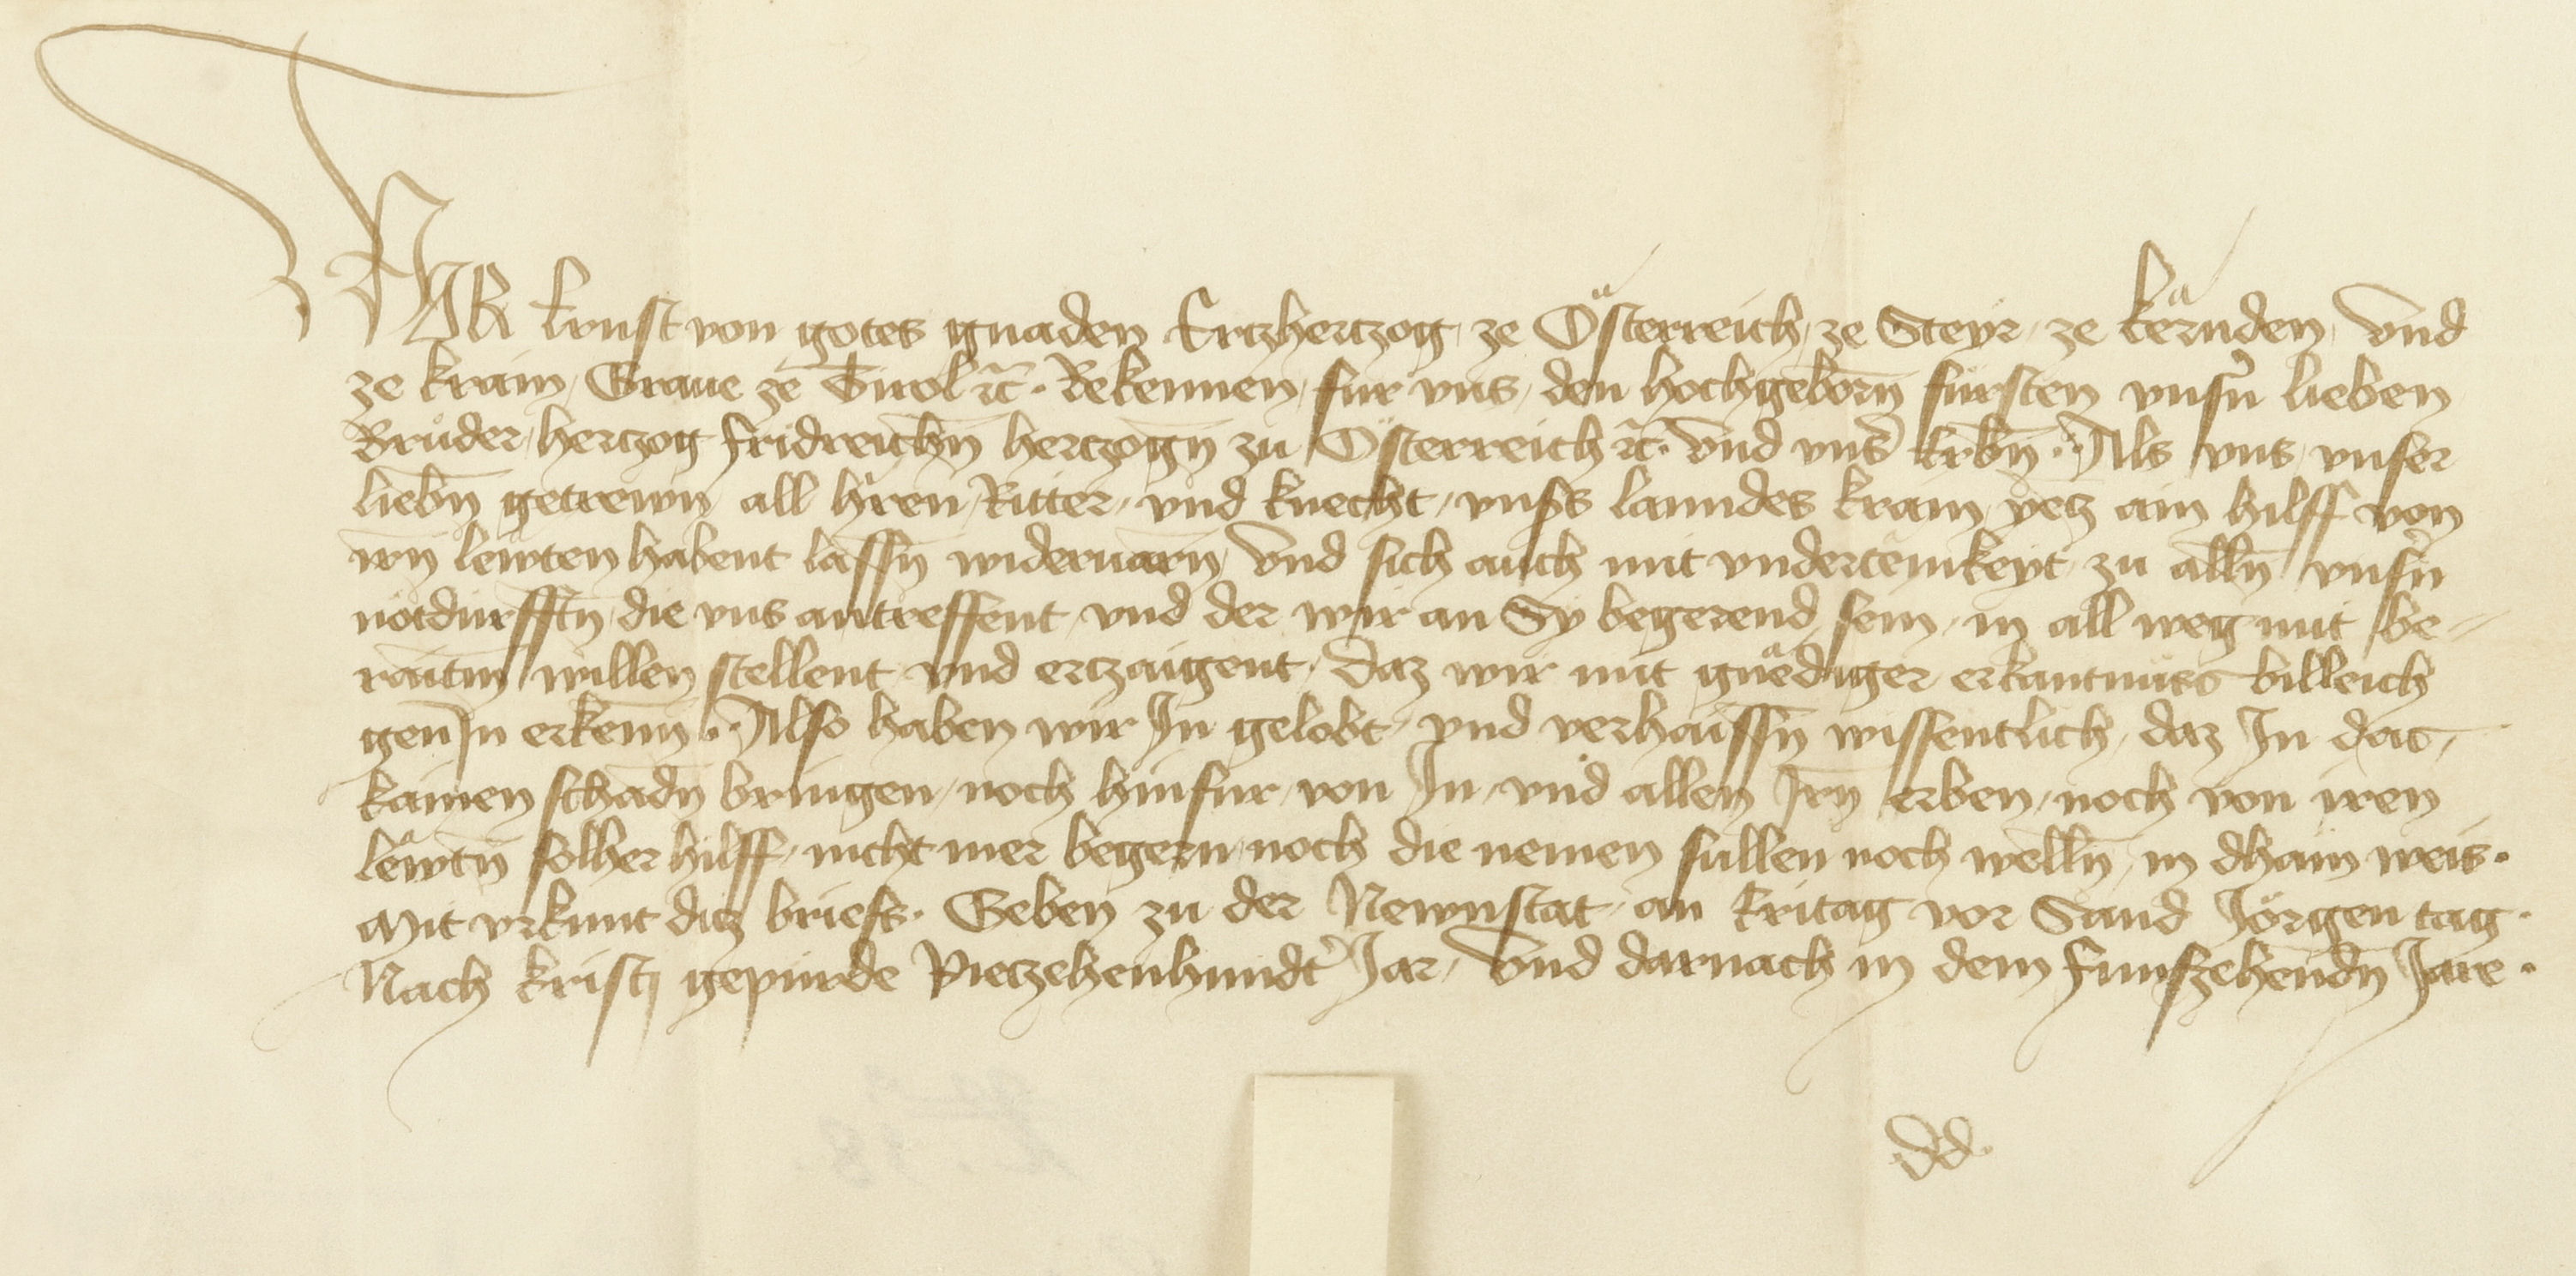 WIR Ernst von gotes gnaden Ertzhertzog ze Österreich, ze Steyr, ze kërnden, vnd
ze krain, Graue ze Tirol ꝛc. Bekennen, fur vns, den hochgeborn̄ fürsten vnsn̄ lieben
Brůder, hertzog fridreichn̄ hertzogn̄ zu Österreich ꝛc. vnd vns̄ Erbn̄. Als vns, vnser
liebn̄ getrewn̄ all hr̄ren, Ritter, vnd knecht, vnsß lanndes krain, yetz ain hilff von
irn̄ lewten habent lassn̄ wideruarn̄, vnd sich auch mit vndertenikeyt, zu alln̄ vnsn̄
notdurfftn̄, die vns antreffent, vnd der wir an Sy begerend sein, in all weg mit be-
raitm̄ willen stellent vnd ertzaigent, daz wir mit gnëdiger erkantnuss billeich
gen In erkenn̄. Also haben wir In gelobt, vnd verhaissn̄ wissentlich, daz In das,
kainen schadn̄ bringen, noch hinfur, von In, vnd allen Irn̄ erben, noch von iren
lëwtn̄ solher hilff, nicht mer begern, noch die nemen sullen noch welln̄, in dhain weis.
Mit vrkunt ditz briefs. Geben zu der Newnstat, an Eritag vor Sand Jörgen tag.
Nach kristi gepurde Vierzehenhundt̄ Jar, vnd darnach in dem funfzehendn̄ Jare.
dd.